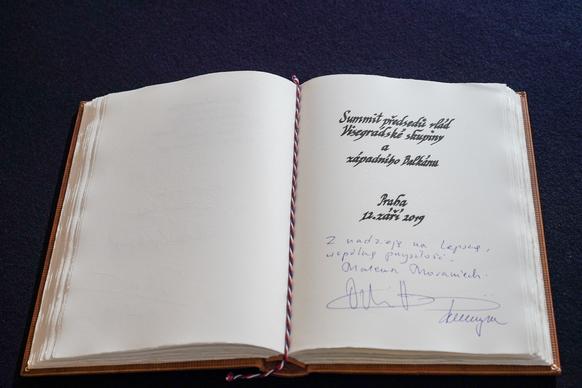 Summit předsedů vlád
Visegrádské skupiny
a
západního Balkánu
Praha
12. září 2019
Z nadzieją na lepszą,
wspólną przyszłość.
Mateusz Morawiecki